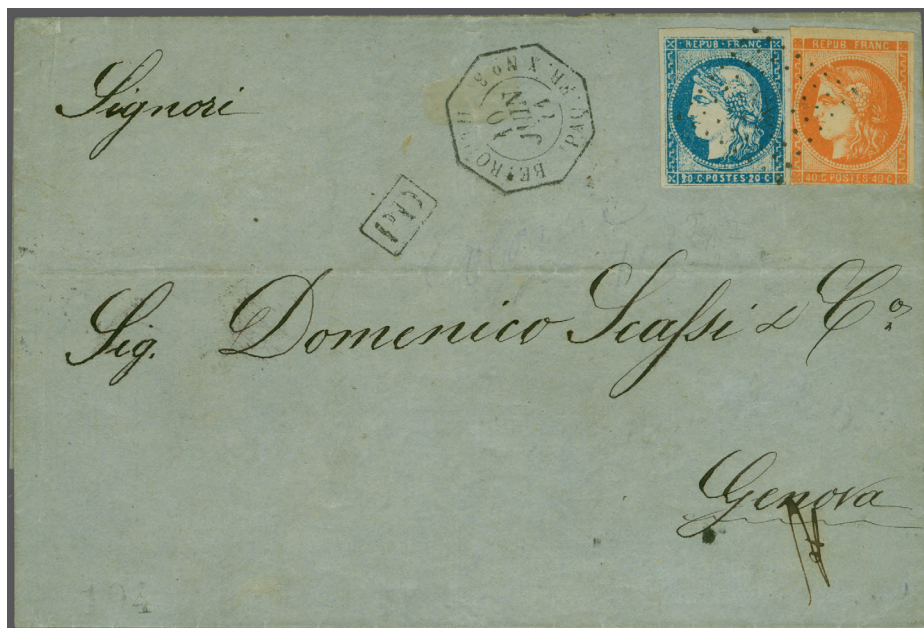 Signori
BEYROUTH PAQ. FR. X No 3
10
JUIN
71
REPUB · FRANC ·
20 C · POSTES · 20 C
REPUB FRANC
40 C · POSTES · 40 C
PD
Sig. Domenico Scassi & Co
Genova